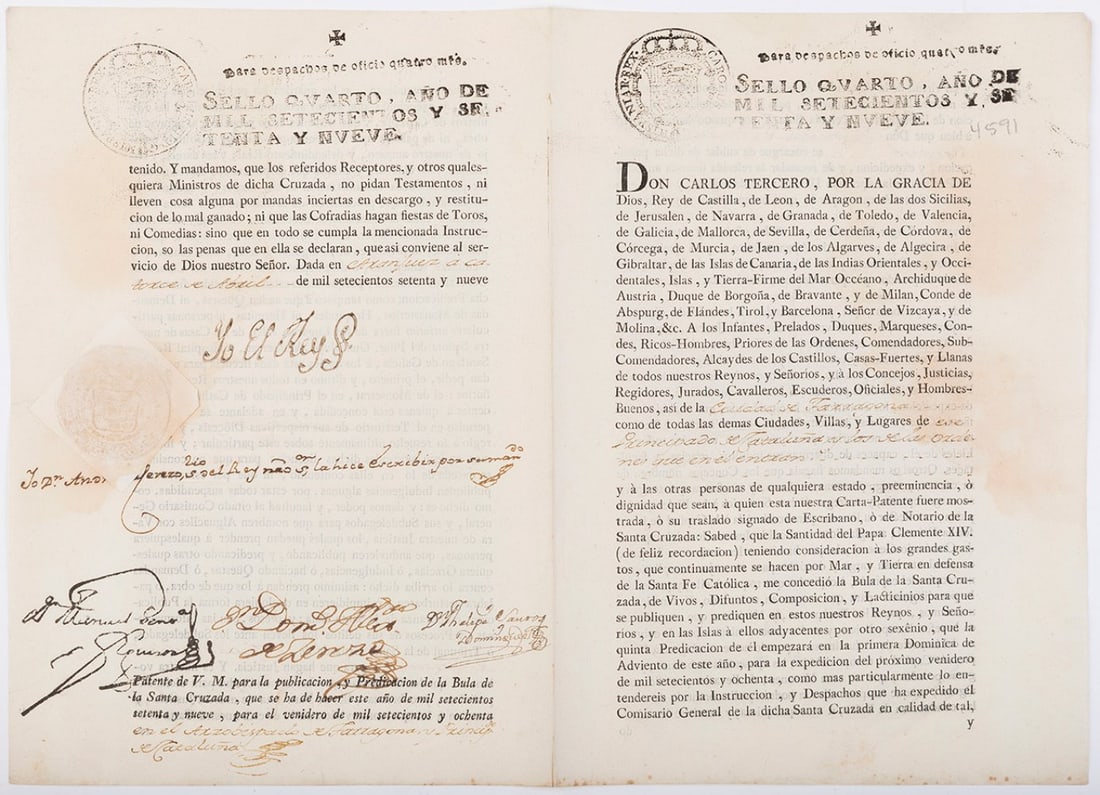 Para despachos de oficio quatro mrs.
SELLO QVARTO, AÑO DE
MIL SETECIENTOS Y SE-
TENTA Y NVEVE.
tenido. Y mandamos, que los referidos Receptores, y otros quales-
quiera Ministros de dicha Cruzada, no pidan Testamentos, ni
lleven cosa alguna por mandas inciertas en descargo, y restitu-
cion de lo mal ganado; ni que las Cofradias hagan fiestas de Toros,
ni Comedias: sino que en todo se cumpla la mencionada Instruc-
cion, so las penas que en ella se declaran, que asi conviene al ser-
vicio de Dios nuestro Señor. Dada en Aranjuez a ca-
torce de Abril de mil setecientos setenta y nueve
Yo El Rey
Yo Dn And. Cerezo, del Rey nro sr la hice escribir por su mando
Dn Manuel
Dn Phelipe
de Cerezo
Patente de V. M. para la publicacion, y Predicacion de la Bula de
la Santa Cruzada, que se ha de hacer este año de mil setecientos
setenta y nueve, para el venidero de mil setecientos y ochenta
en el Arzobispado de Tarragona, y Princip.
de Cataluña
Para despachos de oficio quatro mrs.
SELLO QVARTO, AÑO DE
MIL SETECIENTOS Y SE
TENTA Y NVEVE.
HISPANIAR. REX. CARO
4591
DON CARLOS TERCERO, POR LA GRACIA DE
Dios, Rey de Castilla, de Leon, de Aragon, de las dos Sicilias,
de Jerusalen, de Navarra, de Granada, de Toledo, de Valencia,
de Galicia, de Mallorca, de Sevilla, de Cerdeña, de Córdova, de
Córcega, de Murcia, de Jaen, de los Algarves, de Algecira, de
Gibraltar, de las Islas de Canaria, de las Indias Orientales, y Occi-
dentales, Islas, y Tierra-Firme del Mar Occéano, Archiduque de
Austria, Duque de Borgoña, de Bravante, y de Milan, Conde de
Abspurg, de Flándes, Tirol, y Barcelona, Señor de Vizcaya, y de
Molina, &c. A los Infantes, Prelados, Duques, Marqueses, Con-
des, Ricos-Hombres, Priores de las Ordenes, Comendadores, Sub-
Comendadores, Alcaydes de los Castillos, Casas-Fuertes, y Llanas
de todos nuestros Reynos, y Señorios, y á los Concejos, Justicias,
Regidores, Jurados, Cavalleros, Escuderos, Oficiales, y Hombres-
Buenos, asi de la Ciudad de Tarragona
como de todas las demas Ciudades, Villas, y Lugares de ese
Principado de Cataluña, y los de las Orde-
nes que en el entran
y à las otras personas de qualquiera estado, preeminencia, ò
dignidad que sean, à quien esta nuestra Carta-Patente fuere mos-
trada, ò su traslado signado de Escribano, ò de Notario de la
Santa Cruzada: Sabed, que la Santidad del Papa Clemente XIV.
(de feliz recordacion) teniendo consideracion à los grandes gas-
tos, que continuamente se hacen por Mar, y Tierra en defensa
de la Santa Fe Católica, me concedió la Bula de la Santa Cru-
zada, de Vivos, Difuntos, Composicion, y Lacticinios para que
se publiquen, y prediquen en estos nuestros Reynos, y Seño-
rios, y en las Islas à ellos adyacentes por otro sexênio, que la
quinta Predicacion de el empezará en la primera Dominica de
Adviento de este año, para la expedicion del próximo venidero
de mil setecientos y ochenta, como mas particularmente lo en-
tendereis por la Instruccion, y Despachos que ha expedido el
Comisario General de la dicha Santa Cruzada en calidad de tal,
y